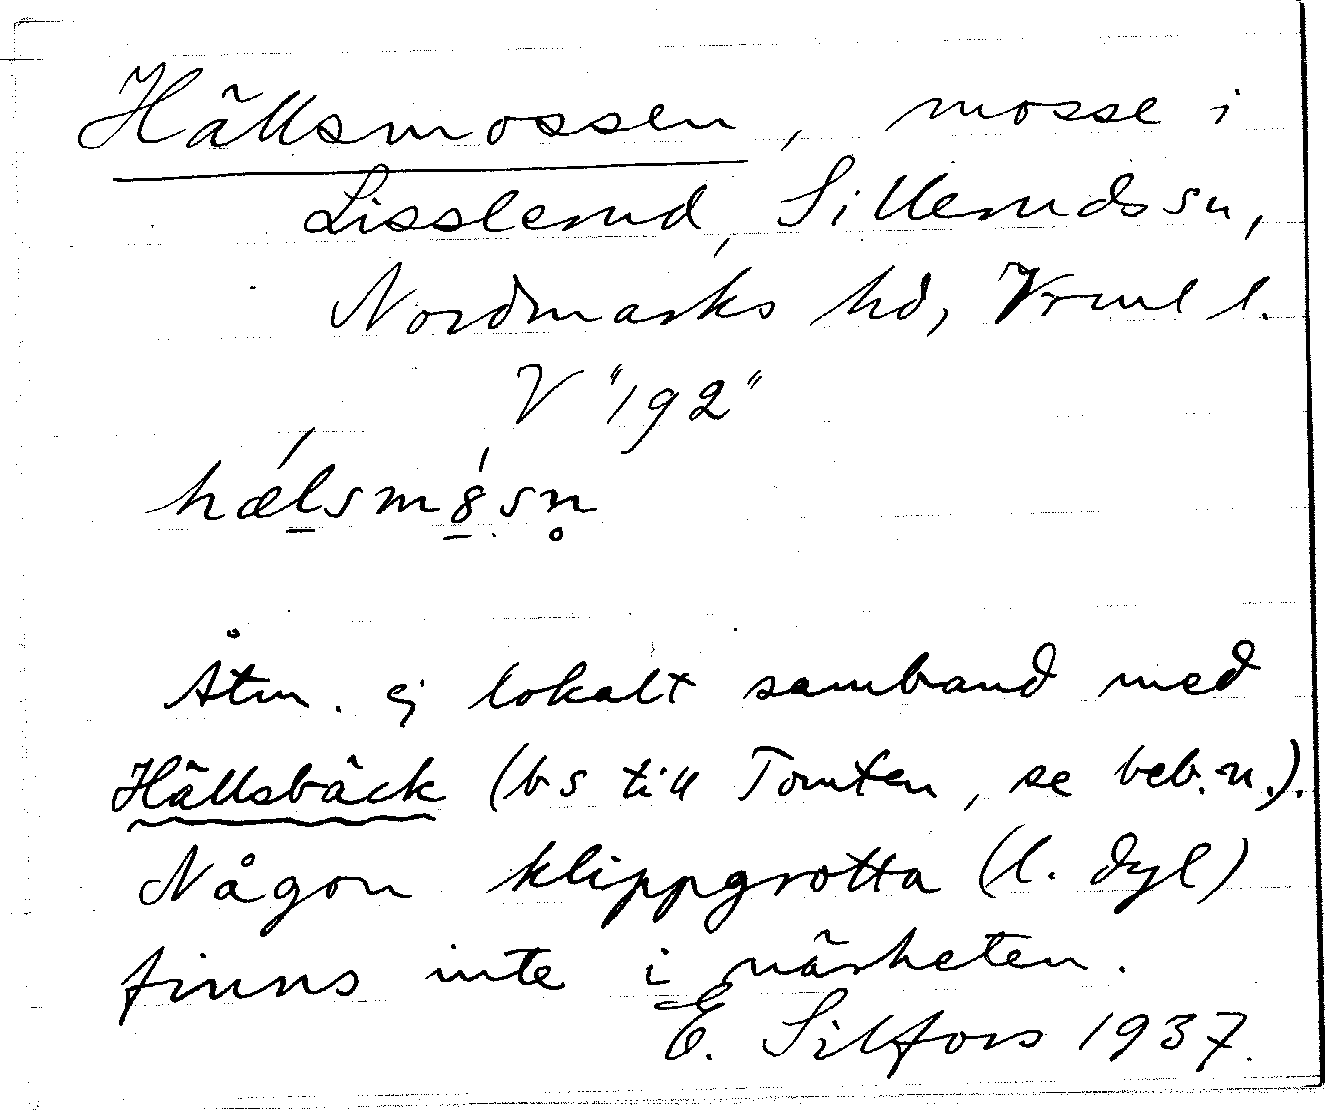 Hällsmossen, mosse i
Lisslerud, Sillerudssn,
Nordmarks hd, Vrml l.
V "192"
hæ´l̠smȣ̠´sn̥
Åtm. ej lokalt samband med
Hällsbäck (bs till Tomten, se beb.n.).
Någon klippgrotta (l. dyl)
finns inte i närheten.
E. Silfors 1937.